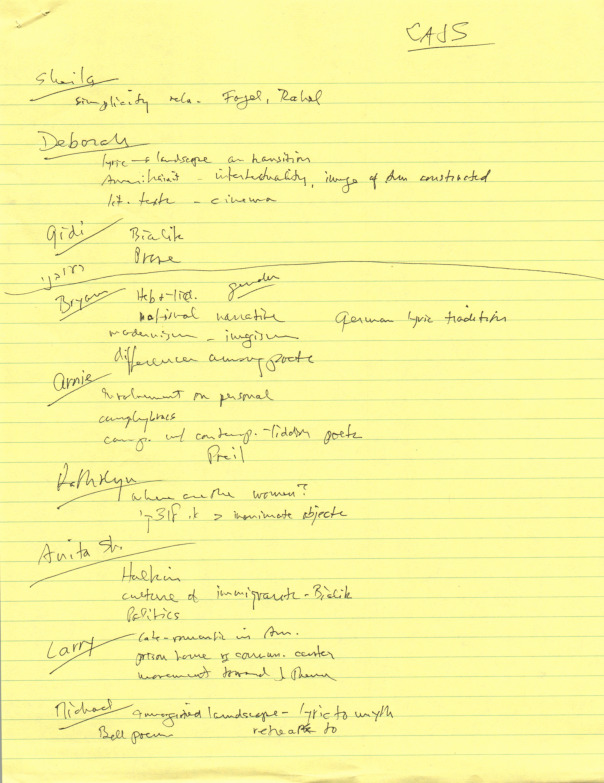 CAJS
Sheila
simplicity rela. Fogel, Rahel
Deborah
lyric → landscape as transition
- intertextuality, image of Am constructed
lit. texts - cinema
Gidi Bialik
Prose
Bryan Heb + Yid. gender
national narrative German lyric tradition
modernism - imagism
differences among poets
Arnie
involvement on personal
amphybracs
comp. w/ contemp. Yiddish poets
Preil
Kathryn
where are the women?
it > inanimate objects
Anita Sh.
Halkin
culture of immigrants - Bialik
Politics
Larry late-romantic in Am.
home vs commun. center
movement toward
Michael imagined landscape - lyric to myth
Bell poem retreats to